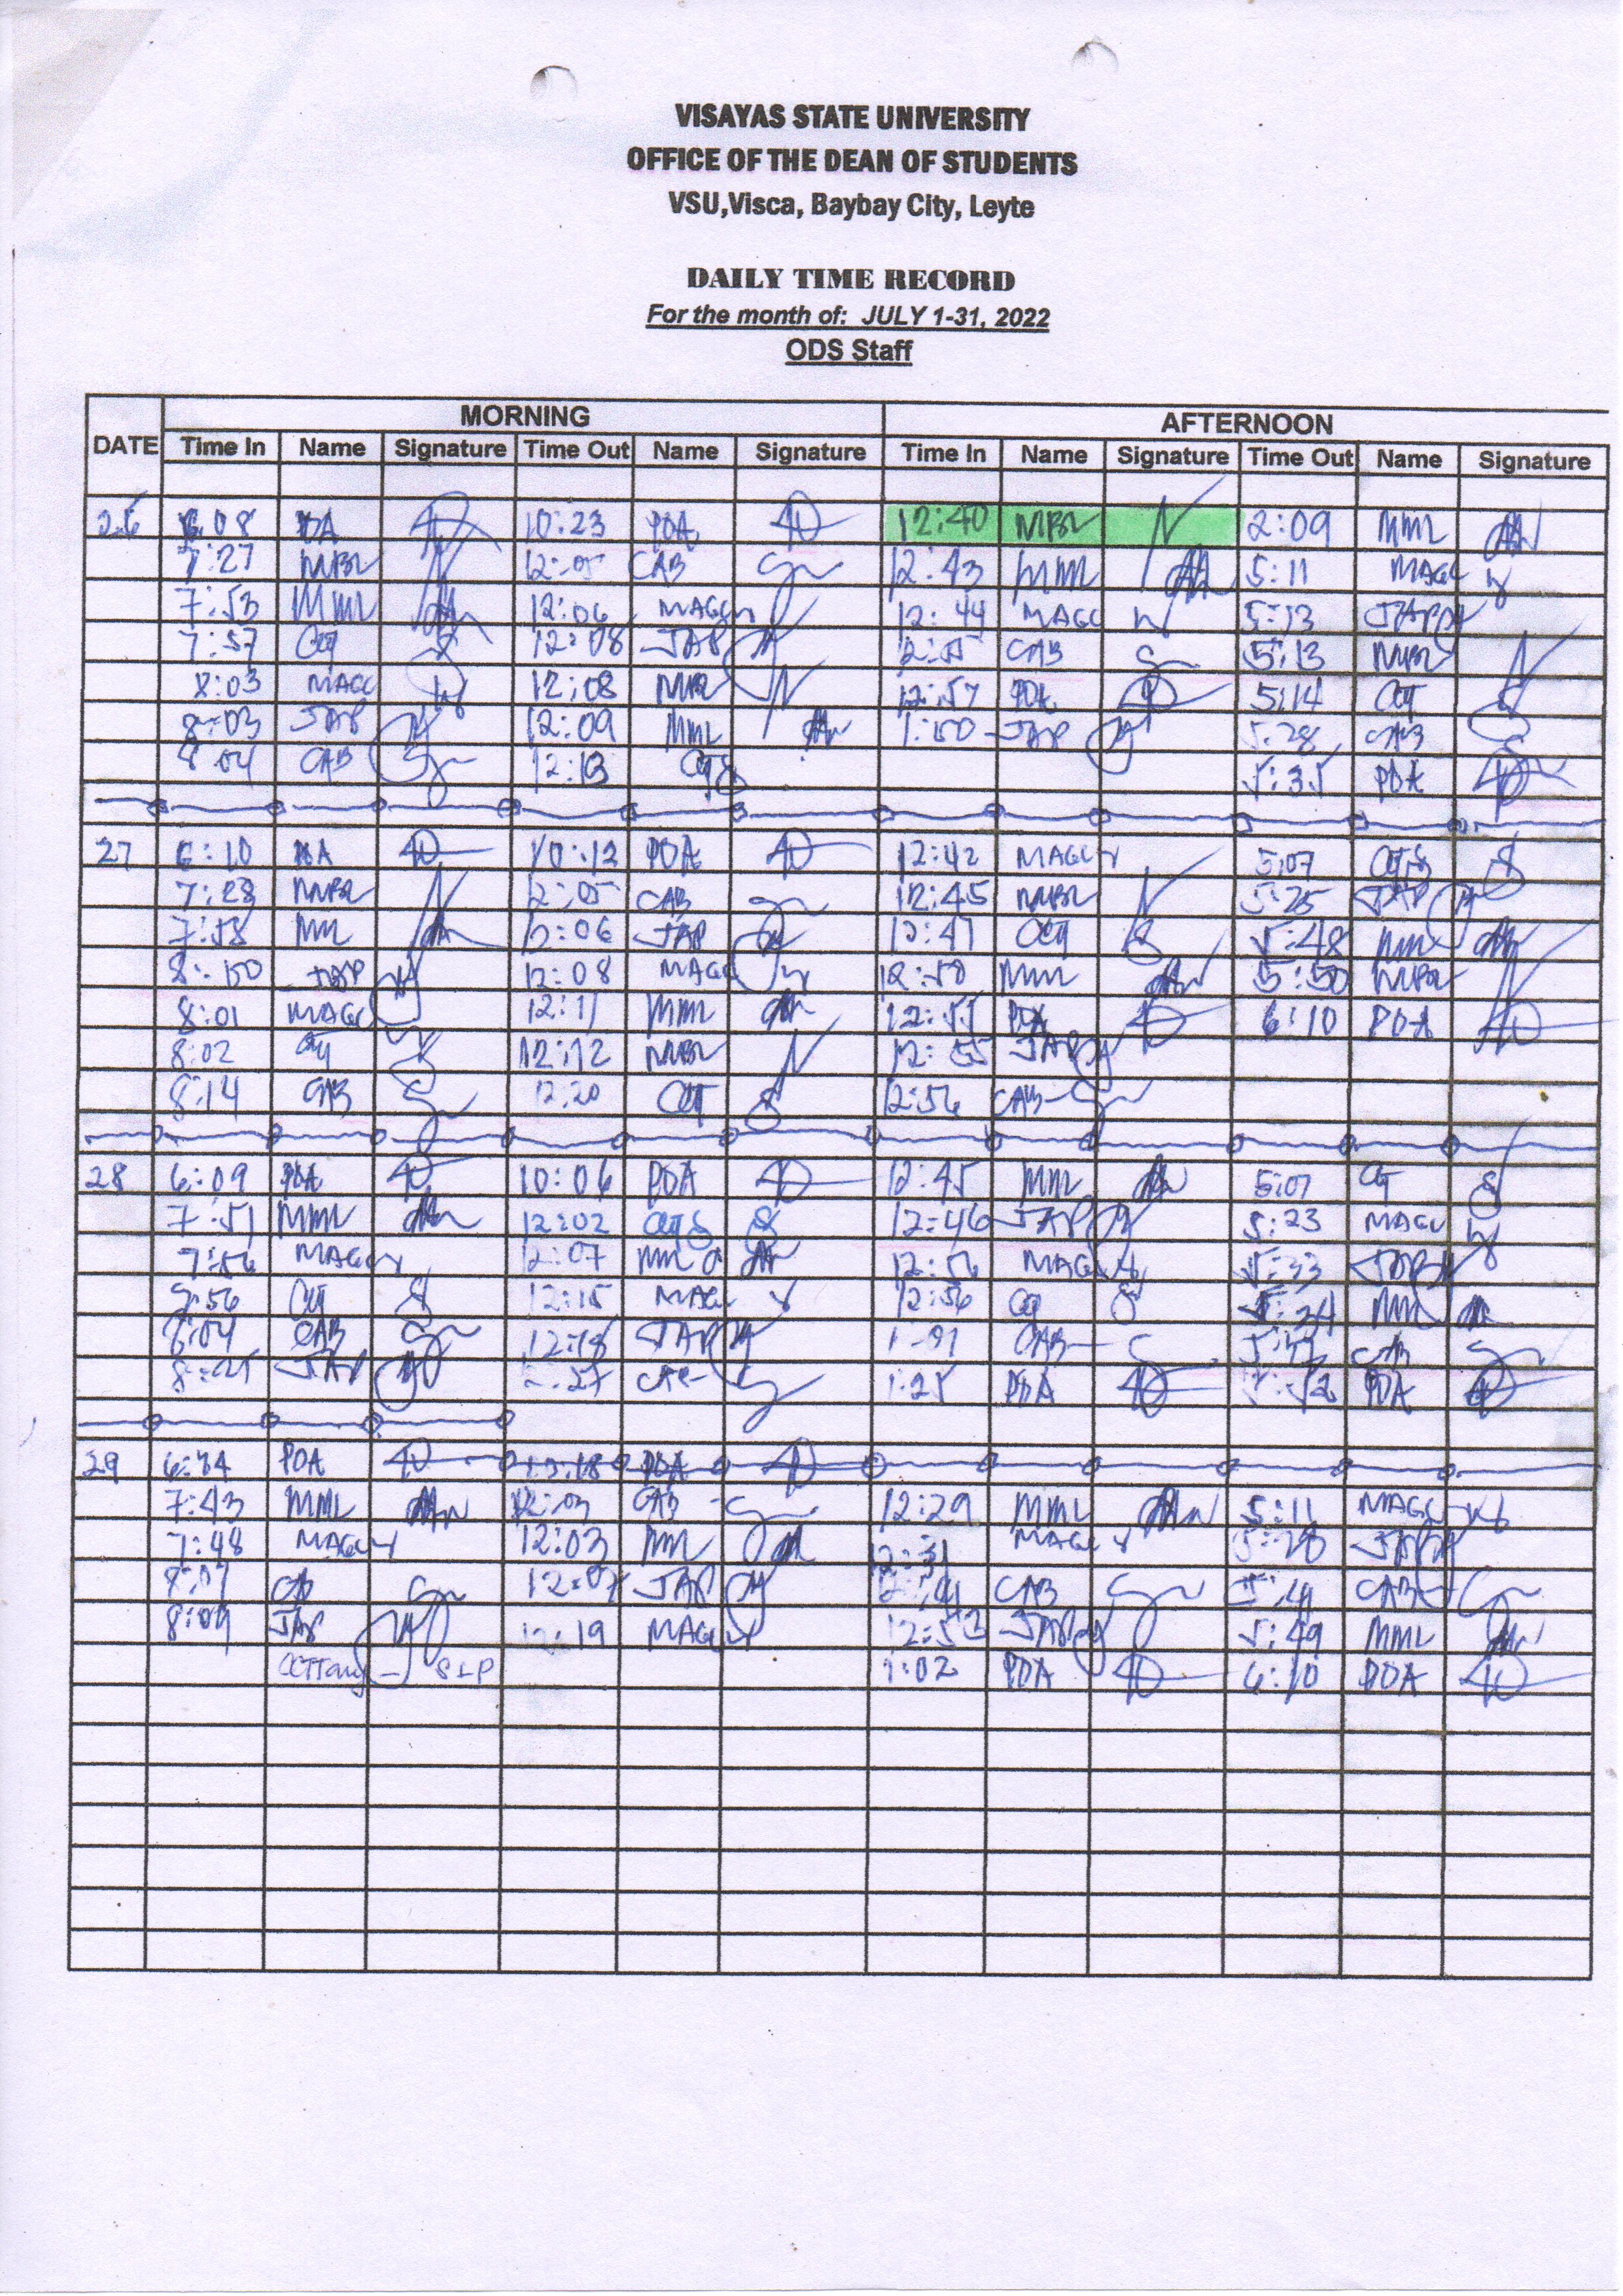 VISAYAS STATE UNIVERSITY
OFFICE OF THE DEAN OF STUDENTS
VSU,Visca, Baybay City, Leyte
DAILY TIME RECORD
For the month of: JULY 1-31, 2022
ODS Staff
DATE MORNING AFTERNOON
Time In Name Signature Time Out Name Signature Time In Name Signature Time Out Name Signature
6:08 PDA 10:23 PDA 12:40 MBL 2:09 MML
7:27 MBL 12:05 CAB 12:43 MML 5:11 MAGC
7:53 MML 12:06 MAGC 12:44 MAGC 5:13 JAP
7:57 CCT 12:08 JAP CAB 5:13 MBL
8:03 MAGC 12:08 MBL 12:57 PDA 5:14 CCT
8:03 JAP 12:09 MML JAP 5:28 CAB
8:04 CAB 12:13 CCT 5:35 PDA
27 6:10 PDA 10:12 PDA 12:42 MAGC 5:07 CCT
7:28 MBL 12:05 CAB 12:45 MBL 5:25 JAP
7:58 MML 12:06 JAP 12:47 CCT 5:48 MML
JAP 12:08 MAGC 12:50 MML 5:50 MBL
8:01 MAGC 12:11 MML 12:55 PDA 6:10 PDA
8:02 CCT 12:12 MBL 12:55 JAP
8:14 CAB 12:20 CCT 12:56 CAB
28 6:09 PDA 10:06 PDA 12:45 MML 5:07 CCT
7:51 MML 12:02 CCT 12:46 JAP 5:23 MAGC
7:56 MAGC 12:07 MML 12:56 MAGC 5:33 JAP
CCT 12:15 MAGC 12:56 CCT MML
8:04 CAB 12:18 JAP 1:01 CAB CAB
JAP CAB 1:25 PDA 5:52 PDA
29 6:14 PDA PDA
7:43 MML 12:03 CAB 12:29 MML 5:11 MAGC
7:48 MAGC 12:03 MML 12:31 MAGC JAP
8:07 CAB 12:07 JAP CAB CAB
8:09 JAP 12:19 MAGC 12:53 JAP 5:49 MML
CCTTang - 1:02 PDA 6:10 PDA